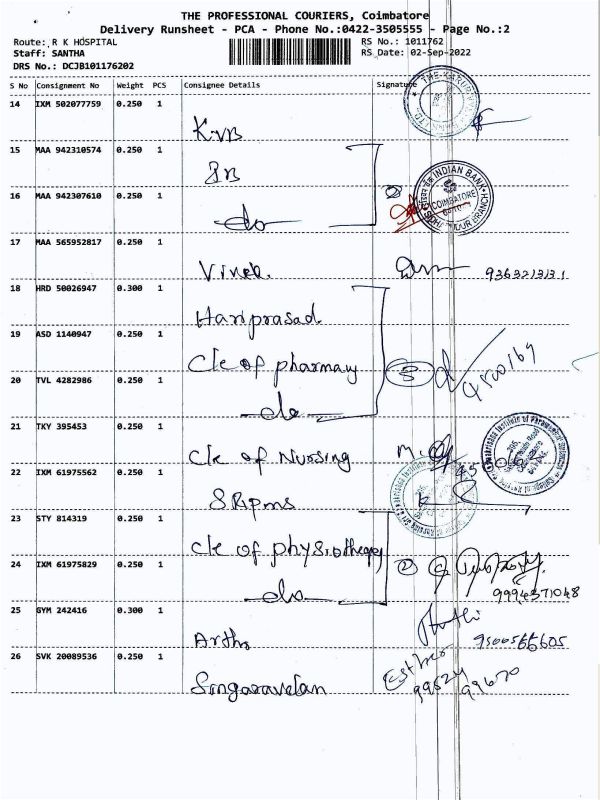 THE PROFESSIONAL COURIERS, Coimbatore
Delivery Runsheet - PCA - Phone No.:0422-3505555 - Page No.:2
Route: R K HOSPITAL
RS No.: 1011762
Staff: SANTHA
RS Date: 02-Sep-2022
DRS No.: DCJB101176202
S No Consignment No Weight PCS Consignee Details Signature
14 IXM 502077759 0.250 1
KVB
15 MAA 942310574 0.250 1
IB
16 MAA 942307610 0.250 1
INDIAN BANK
COIMBATORE
BRANCH
do
17 MAA 565952817 0.250 1
Vivek.
18 HRD 50026947 0.300 1
Hariprasad
19 ASD 1140947 0.250 1
Cle of pharmay
3
20 TVL 4282986 0.250 1
do
21 TKY 395453 0.250 1
Cle of Nursing
22 IXM 61975562 0.250 1
SRipms
23 STY 814319 0.250 1
Cle of physiotherapy
24 IXM 61975829 0.250 1
2
do
9994371048
25 GYM 242416 0.300 1
Artho
9500566605
26 SVK 20089536 0.250 1
Singaravelan
Esther
99524 99670